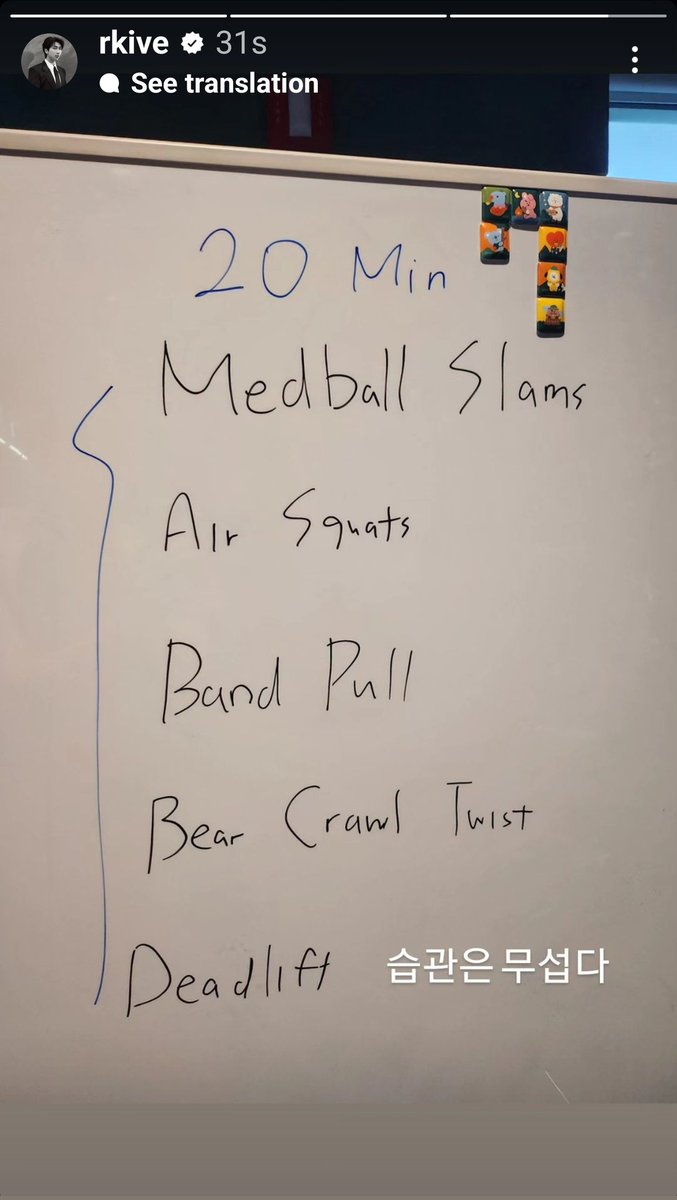 rkive 31s
See translation
20 Min
Medball Slams
Air Squats
Band Pull
Bear Crawl Twist
Deadlift 습관은 무섭다